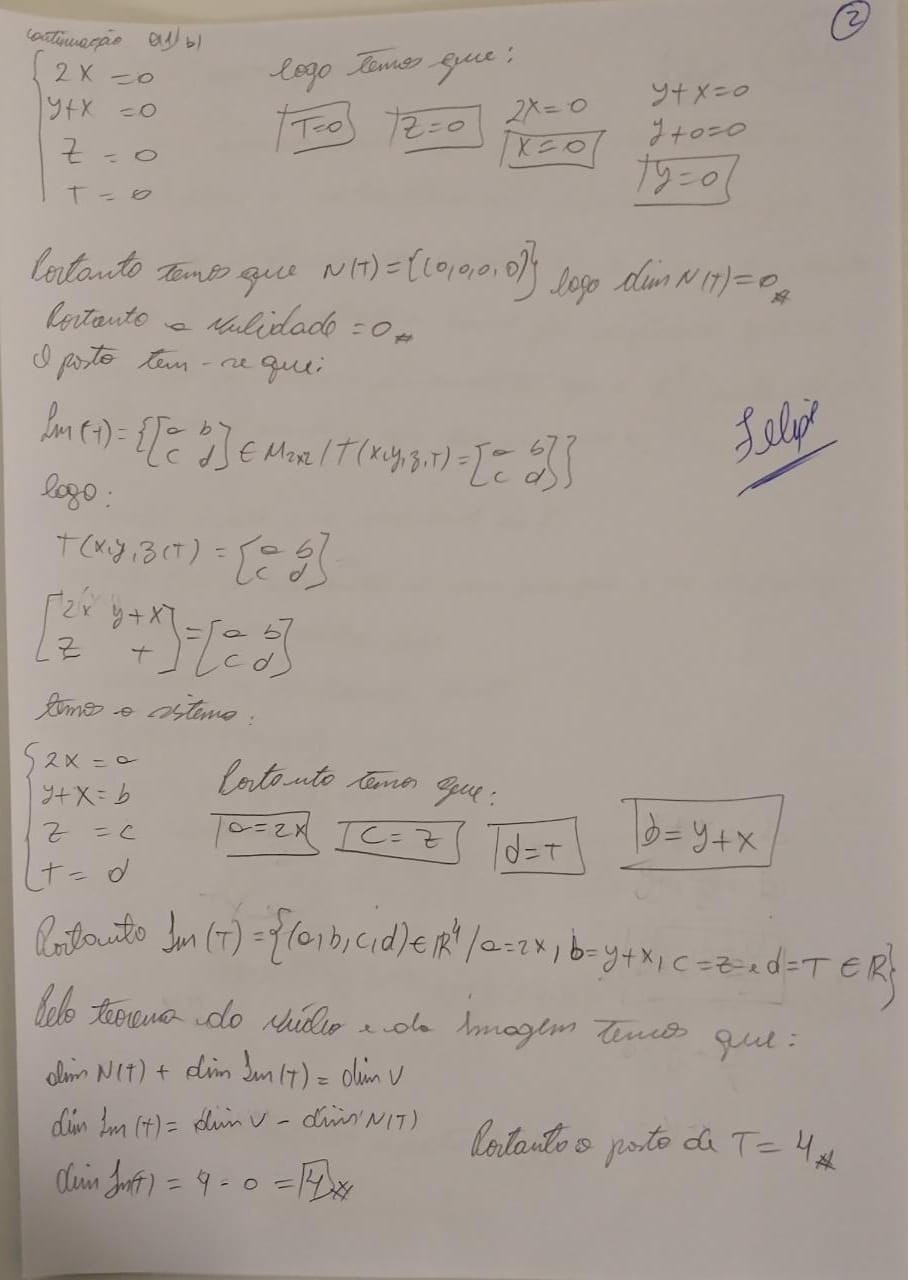 2
continuação Q1) b)
2x = 0
y+x = 0
z = 0
T = 0
logo temos que:
T=0 z=0 2x=0
x=0
y+x=0
y+0=0
y=0
Portanto temos que N(T)={(0,0,0,0)} logo dim N(T)=0
Portanto a Nulidade = 0
O posto tem-se que:
Im(T)={[a b
c d] ∈ M2x2 / T(x,y,z,T)=[a b
c d]}
logo:
T(x,y,z,T) = [a b
c d]
[2x y+x
z T] = [a b
c d]
temos o sistema:
2x = a
y+x = b
z = c
T = d
Portanto temos que:
a=2x c=z d=T b=y+x
Felipe
Portanto Im(T)={(a,b,c,d)∈ℝ⁴/a=2x, b=y+x, c=z e d=T ∈ℝ}
Pelo teorema do Núcleo e da Imagem temos que:
dim N(T) + dim Im(T) = dim V
dim Im(T) = dim V - dim N(T)
dim Im(T) = 4 - 0 = 4
Portanto o posto de T = 4